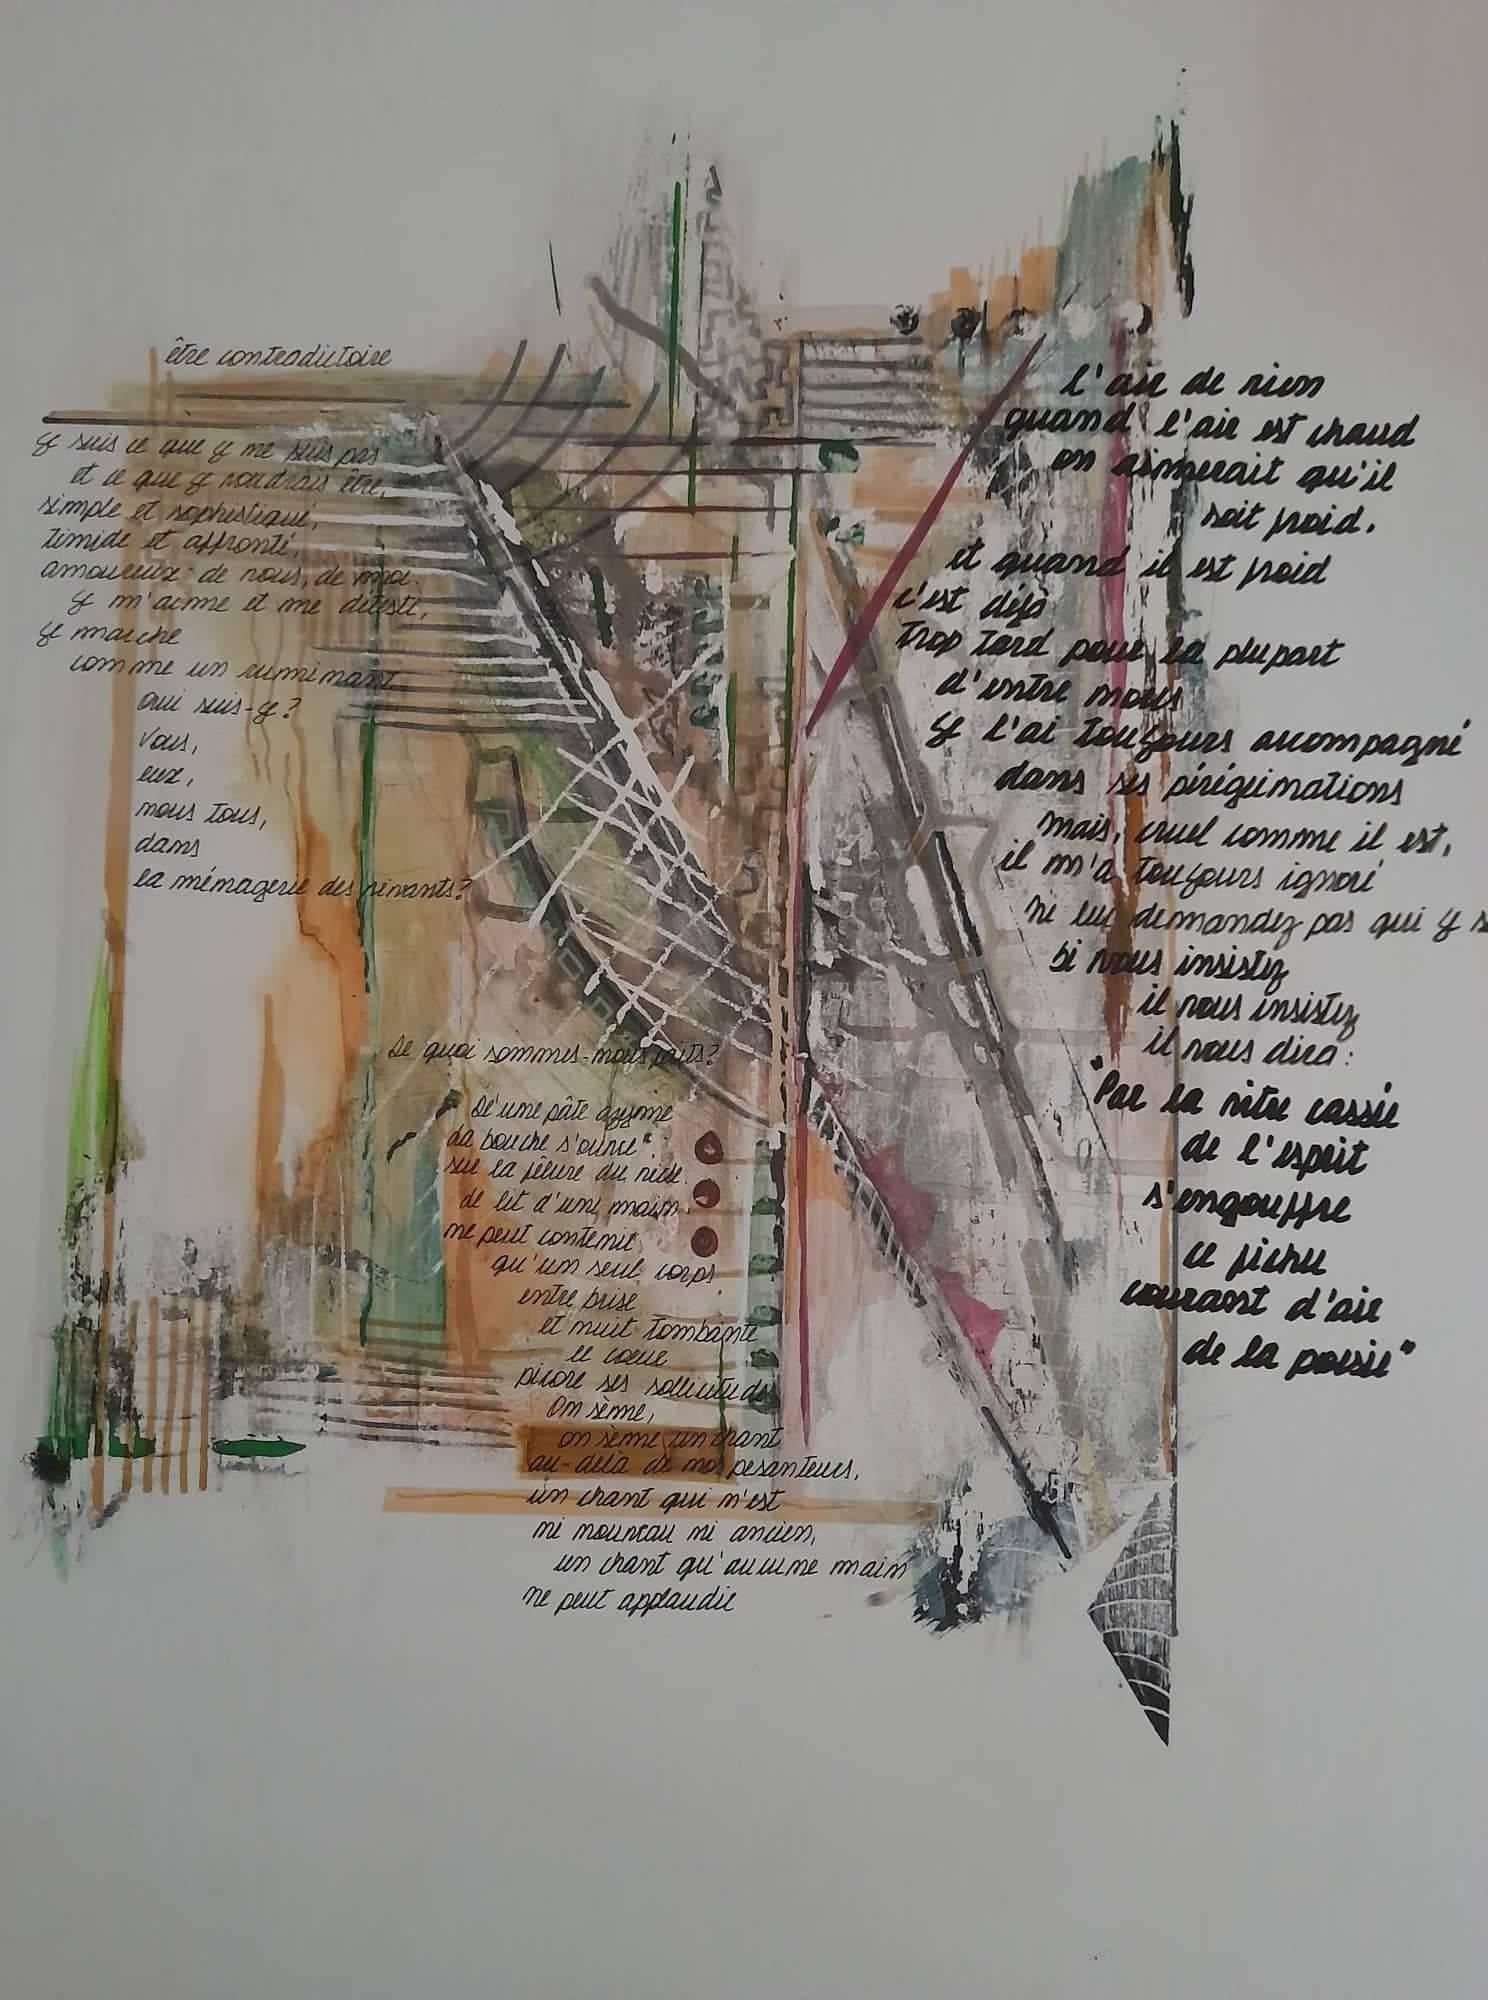 être contradictoire
je suis ce que je ne suis pas
et ce que je voudrais être,
simple et sophistiqué,
timide et affronté,
amoureux: de vous, de moi.
je m'aime et me déteste,
je marche
comme un ruminant
qui suis-je?
vous,
eux,
nous tous,
dans
la ménagerie des vivants?
De quoi sommes-nous faits?
D'une pâte azyme
La bouche s'ouvre
sur la fêlure du vide.
Le lit d'une main
ne peut contenir
qu'un seul corps
entre brise
et nuit tombante
le cœur
picore ses sollicitudes
On sème,
on sème un chant
au-delà de nos pesanteurs,
un chant qui n'est
ni nouveau ni ancien,
un chant qu'aucune main
ne peut applaudir
L'air de rien
quand l'air est chaud
on aimerait qu'il
soit froid.
et quand il est froid
c'est déjà
trop tard pour la plupart
d'entre nous
je l'ai toujours accompagné
dans ses pérégrinations
mais, cruel comme il est,
il m'a toujours ignoré
ne lui demandez pas qui je
si vous insistez
il vous insistez
il vous dira:
"Par la vitre cassée
de l'esprit
s'engouffre
ce fichu
courant d'air
de la poésie"